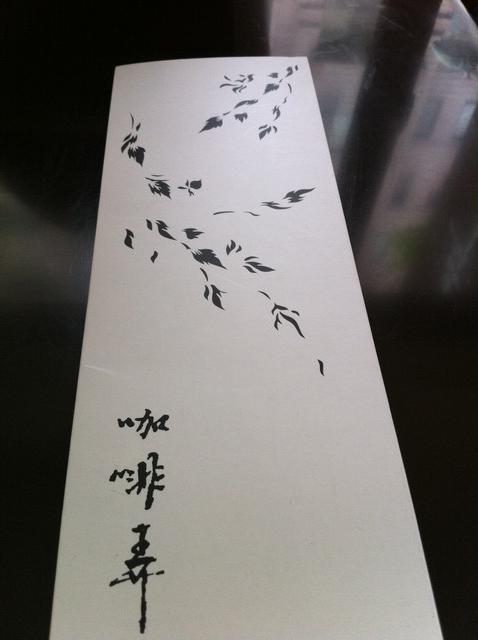 咖啡弄